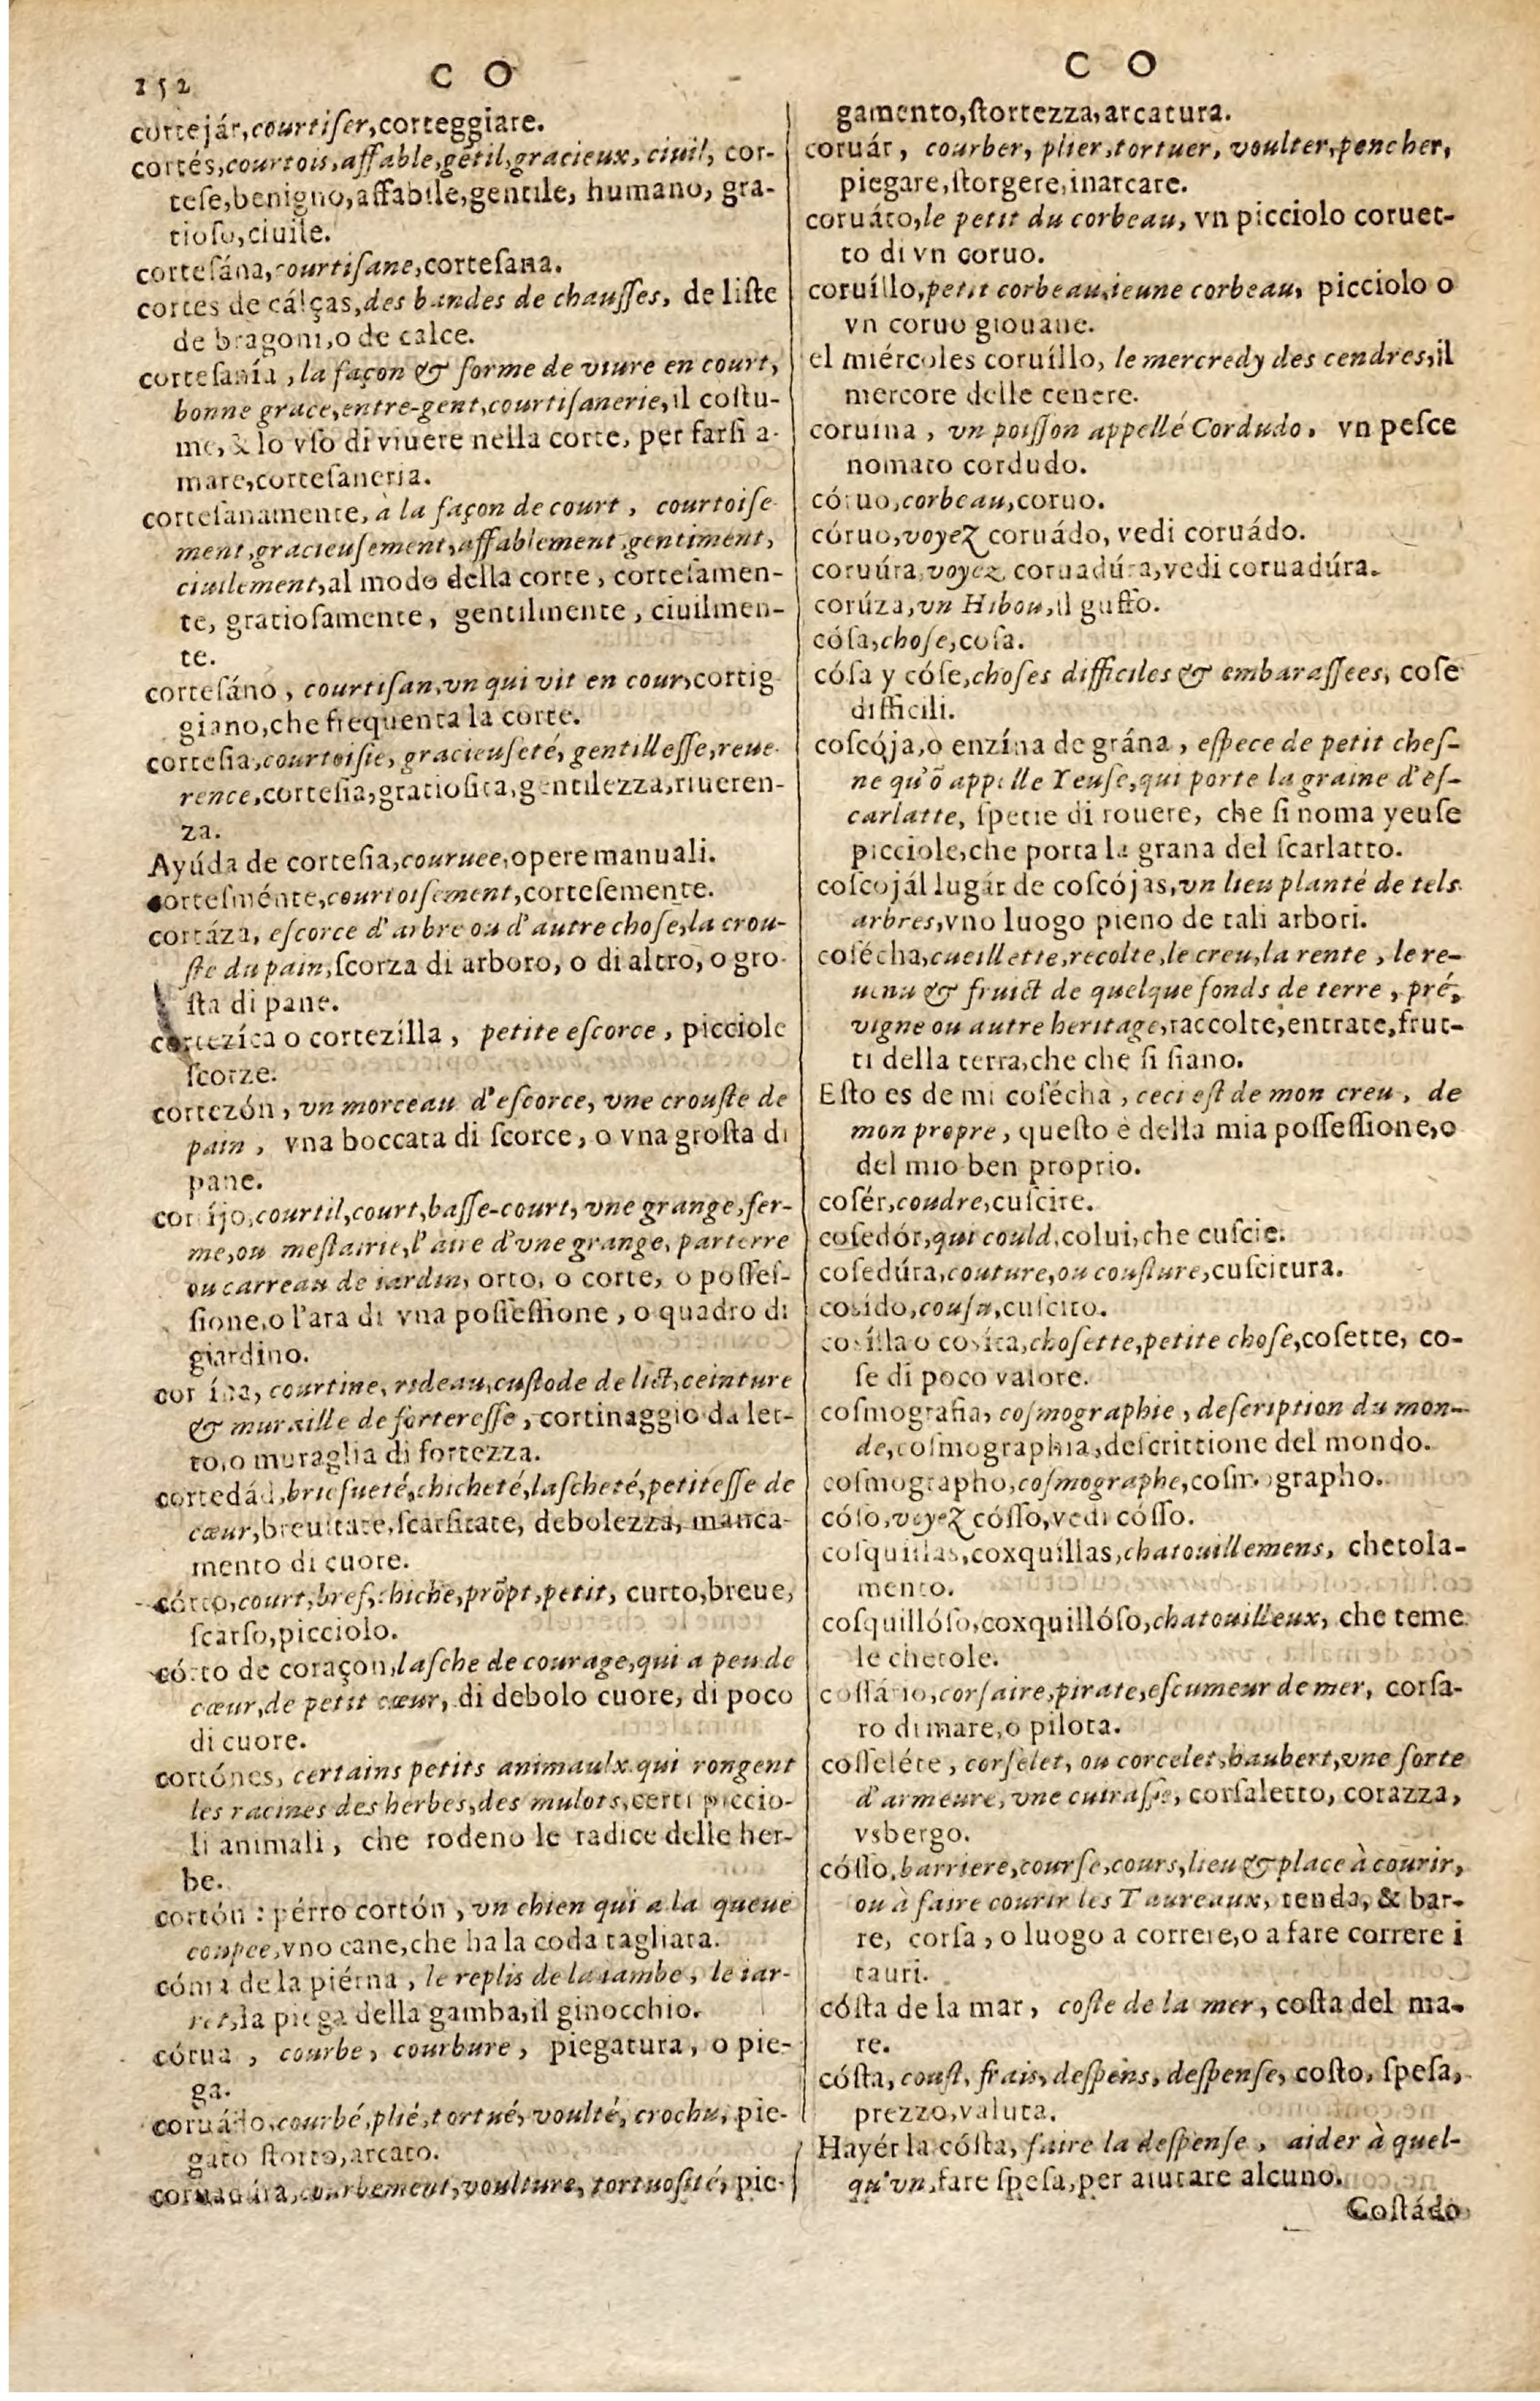 152
C O
cortejár,courtiſer,corteggiare.
cortés,courtois,affable,gẽtil,gracieux, ciuil, cor-
teſe,benigno,affabile,gentile, humano, gra-
tioſo,ciuile.
corteſána,courtiſane,corteſana.
cortes de cálças,des bandes de chauſſes, de liſte
de bragoni,o de calce.
corteſanía, la façon & forme de viure en court,
bonne grace,entre-gent,courtiſanerie,il coſtu-
me, & lo vſo di viuere nella corte, per farſi a-
mare,corteſaneria.
corteſanamente, à la façon de court, courtoiſe-
ment,gracieuſement,affablement,gentiment,
ciuilement,al modo della corte, corteſamen-
te, gratioſamente, gentilmente, ciuilmen-
te.
corteſáno, courtiſan,vn qui vit en cour,cortig
giano,che frequenta la corte.
corteſia,courtoiſie, gracieuſeté, gentilleſſe,reue-
rence,corteſia,gratioſita,gentilezza,riueren-
za.
Ayúda de corteſia,couruee,opere manuali.
corteſménte,courtoiſement,corteſemente.
cortáza, eſcorce d'arbre ou d'autre choſe,la crou-
ſte du pain,ſcorza di arboro, o di altro, o gro-
ſta di pane.
cortezíca o cortezílla, petite eſcorce, picciole
ſcorze.
cortezón, vn morceau d'eſcorce, vne crouſte de
pain, vna boccata di ſcorce, o vna groſta di
pane.
cortíjo,courtil,court,baſſe-court, vne grange,fer-
me,ou meſtairie,l'aire d'vne grange, parterre
ou carreau de iardin, orto, o corte, o poſſeſ-
ſione,o l'ara di vna poſſeſſione, o quadro di
giardino.
cortína, courtine, rideau,cuſtode de lict,ceinture
& muraille de fortereſſe, cortinaggio da let-
to,o muraglia di fortezza.
cortedád,briefueté,chicheté,laſcheté,petiteſſe de
cœur,breuitate,ſcarſitate, debolezza, manca-
mento di cuore.
córto,court,bref,chiche,prõpt,petit, curto,breue,
ſcarſo,picciolo.
córto de coraçon,laſche de courage,qui a peu de
cœur,de petit cœur, di debolo cuore, di poco
di cuore.
cortónes, certains petits animaulx qui rongent
les racines des herbes,des mulots,certi piccio-
li animali, che rodeno le radice delle her-
be.
cortón: pérro cortón, vn chien qui a la queue
coupee,vno cane,che ha la coda tagliata.
córua de la piérna, le replis de la iambe, le iar-
ret,la piega della gamba,il ginocchio.
córua, courbe, courbure, piegatura, o pie-
ga.
coruádo,courbé,plié,tortué, voulté, crochu, pie-
gato ſtorto,arcato.
coruadúra,courbement,voulture, tortuoſité, pie-
C O
gamento,ſtortezza,arcatura.
coruár, courber, plier,tortuer, voulter,pencher,
piegare,ſtorgere,inarcare.
coruáto,le petit du corbeau, vn picciolo coruet-
to di vn coruo.
coruíllo,petit corbeau,ieune corbeau, picciolo o
vn coruo giouane.
el miércoles coruíllo, le mercredy des cendres,il
mercore delle cenere.
coruina, vn poiſſon appellé Cordudo. vn peſce
nomato cordudo.
córuo,corbeau,coruo.
córuo,voyez coruádo, vedi coruádo.
coruúra,voyez coruadúra,vedi coruadúra.
corúza,vn Hibou,il guffo.
cóſa,choſe,coſa.
cóſa y cóſe,choſes difficiles & embaraſſees, coſe
difficili.
coſcója,o enzína de grána, eſpece de petit cheſ-
ne qu'õ appelle Yeuſe,qui porte la graine d'eſ-
carlatte, ſpetie di rouere, che ſi noma yeuſe
picciole,che porta la grana del ſcarlatto.
coſcojál lugár de coſcójas,vn lieu planté de tels
arbres,vno luogo pieno de tali arbori.
coſécha,cueillette,recolte,le creu,la rente, le re-
uenu & fruict de quelque fonds de terre, pré,
vigne ou autre heritage,raccolte,entrate,frut-
ti della terra,che che ſi ſiano.
Eſto es de mi coſécha, ceci eſt de mon creu, de
mon propre, queſto è della mia poſſeſſione,o
del mio ben proprio.
coſér,coudre,cuſcire.
coſedór,qui could,colui,che cuſcie.
coſedúra,couture,ou couſture,cuſcitura.
coſido,couſu,cuſcito.
coſílla o coſíta,choſette,petite choſe,coſette, co-
ſe di poco valore.
coſmografia, coſmographie, deſcription du mon-
de,coſmographia,deſcrittione del mondo.
coſmographo,coſmographe,coſmographo.
cóſo,voyez cóſſo,vedi cóſſo.
coſquillas,coxquíllas,chatouillemens, chetola-
mento.
coſquillóſo,coxquillóſo,chatouilleux, che teme
le chetole.
coſſário,corſaire,pirate,eſcumeur de mer, corſa-
ro di mare,o pilota.
coſſeléte, corſelet, ou corcelet,haubert,vne ſorte
d'armeure, vne cuiraſſe, corſaletto, corazza,
vsbergo.
cóſſo,barriere,courſe,cours,lieu & place à courir,
ou à faire courir les Taureaux, tenda, & bar-
re, corſa, o luogo a correre,o a fare correre i
tauri.
cóſta de la mar, coſte de la mer, coſta del ma-
re.
cóſta,couſt, frais,deſpens, deſpenſe, coſto, ſpeſa,
prezzo,valuta.
Hayér la cóſta, faire la deſpenſe, aider à quel-
qu'vn,fare ſpeſa,per aiutare alcuno.
Coſtádo